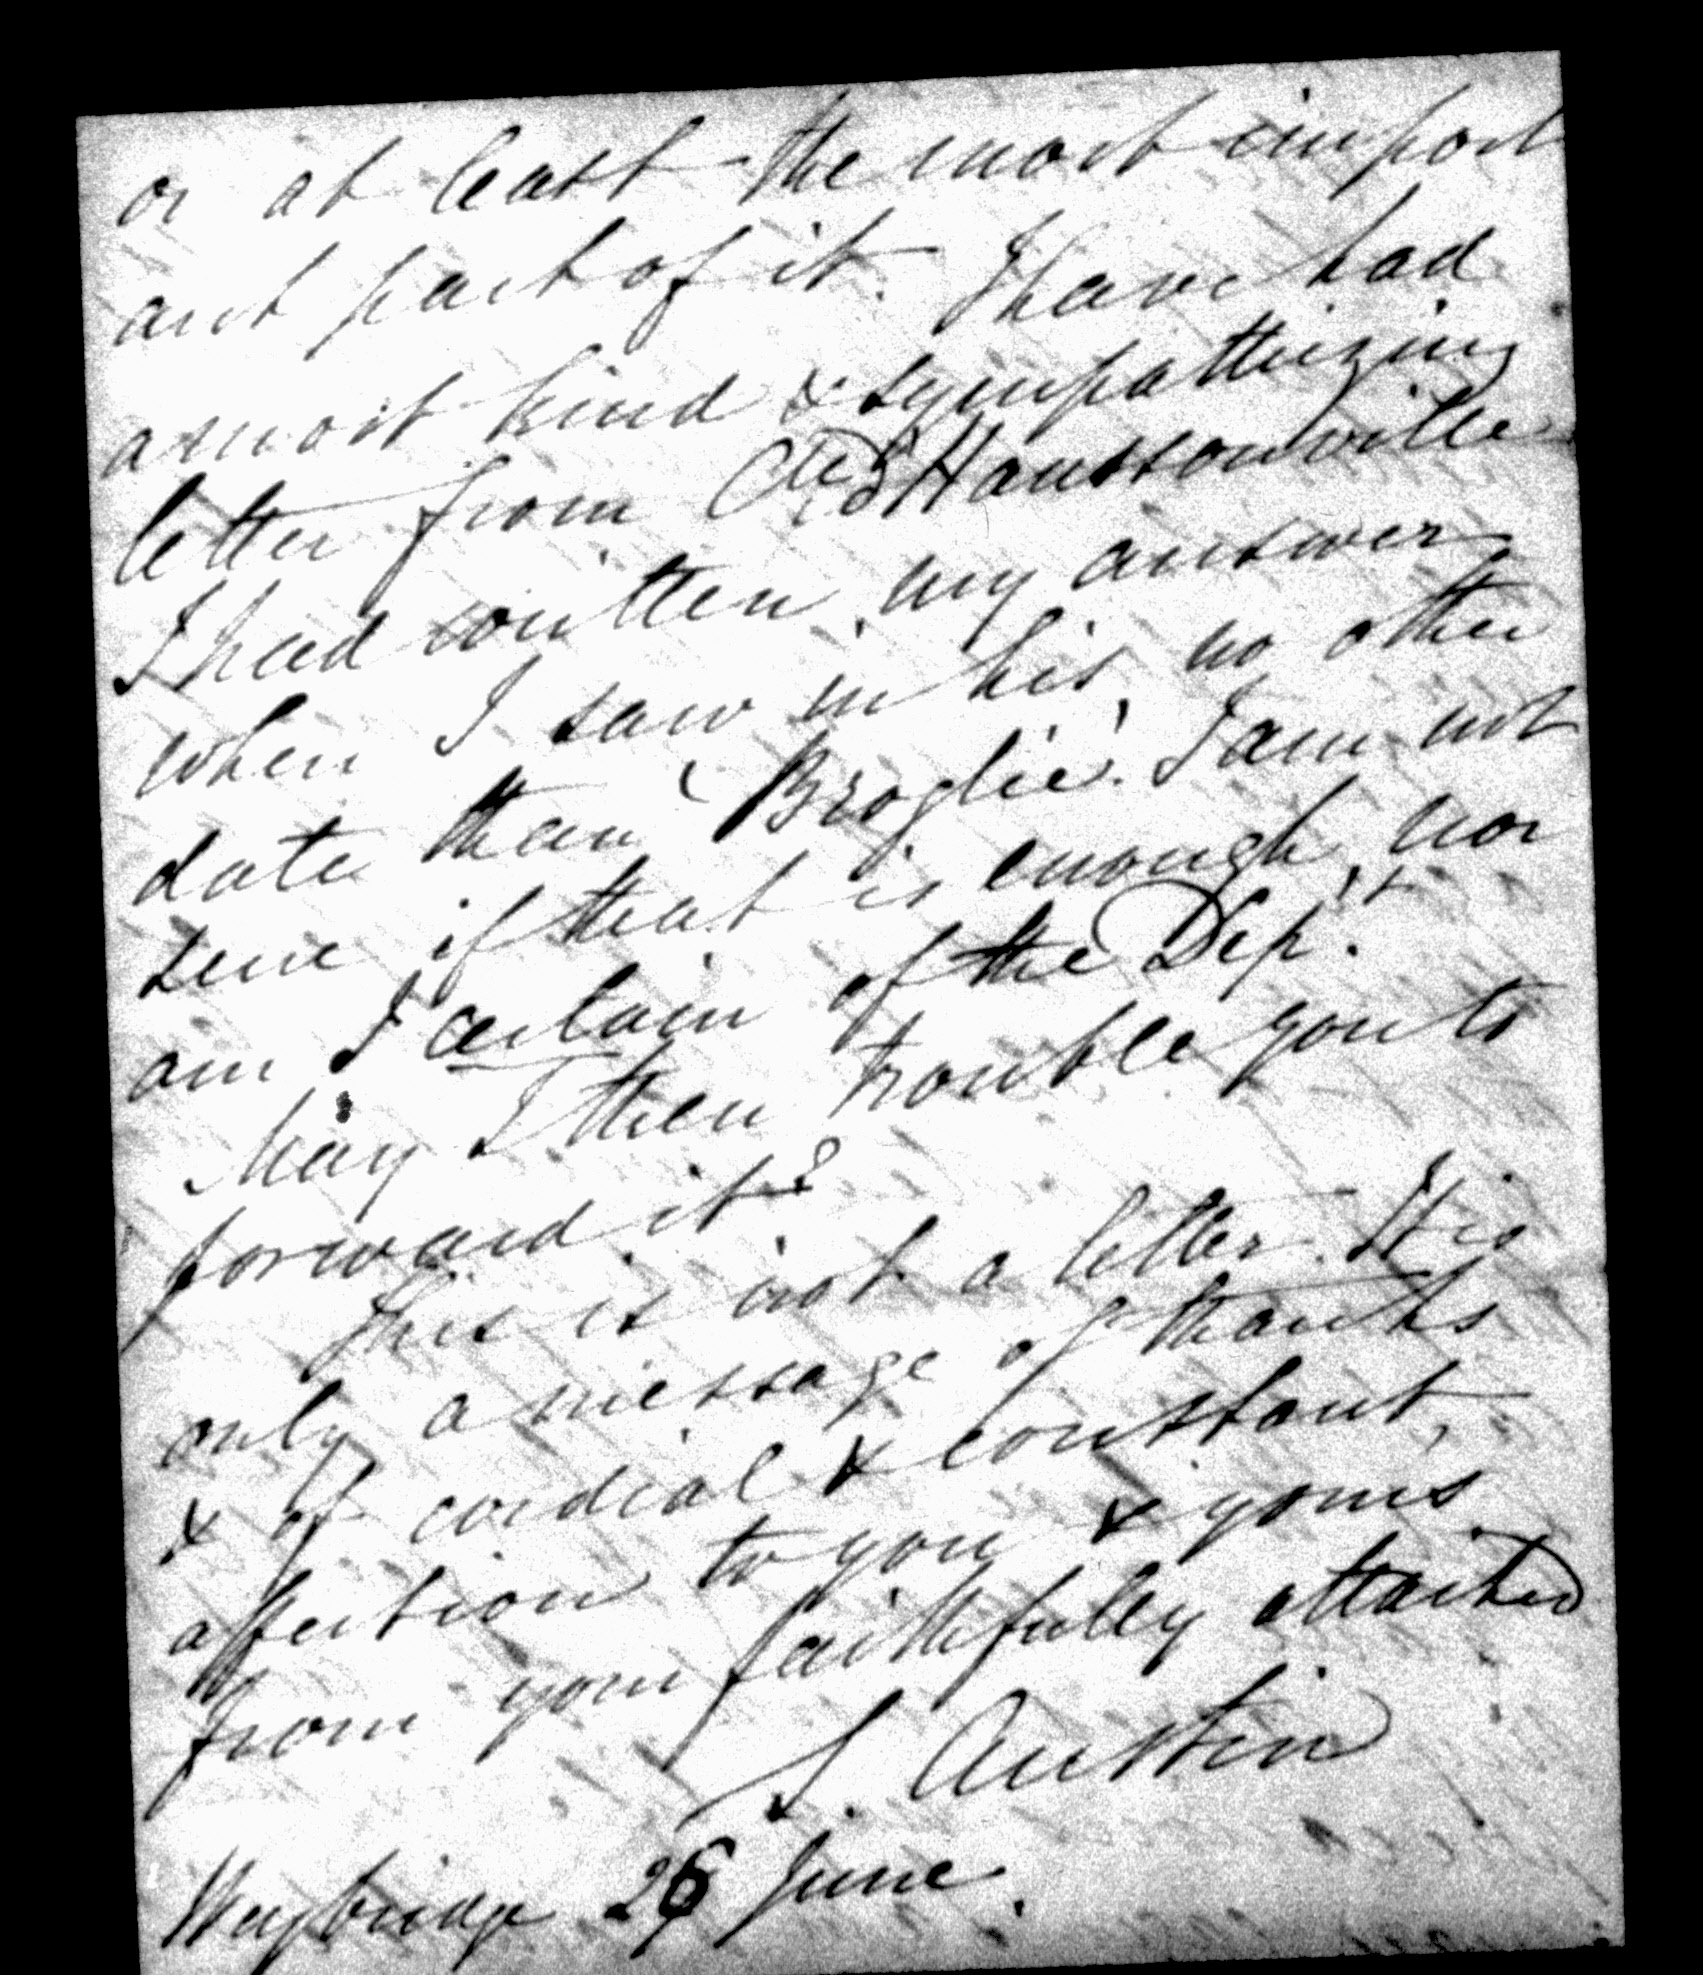 or at least the most import
ant part of it. I have had
a most kind & sympathizing
letter from Cte d'Haussonville
I had written my answer
when I saw in his, no other
date than 'Broglie'. I am not
sure if that is enough, nor
am I certain of the Dept.
May I then trouble you to
forward it?
This is not a letter. It is
only a message of thanks
& of cordial & constant,
affection to you & yours
from your faithfully attached
S. Austin
Weybridge 26 June.